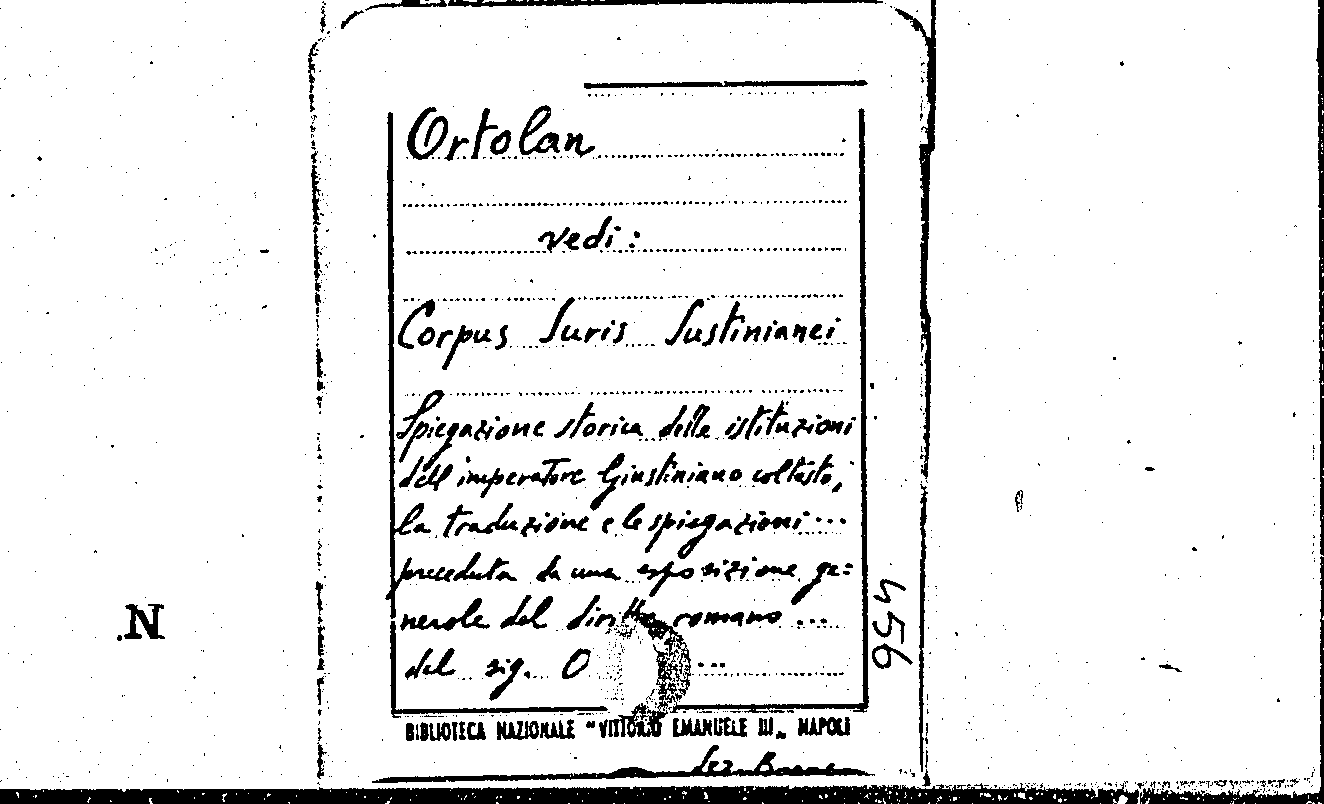 Ortolan
vedi:
Corpus Iuris Iustinianei
Spiegazione storica delle istituzioni
dell imperatore Giustiniano col testo,
la traduzione e le spiegazioni...
preceduta da una esposizione ge=
nerale del diritto romano ...
del sig. O ...
BIBLIOTECA NAZIONALE "VITTORIO EMANUELE III„ NAPOLI
Sez.
456
N.